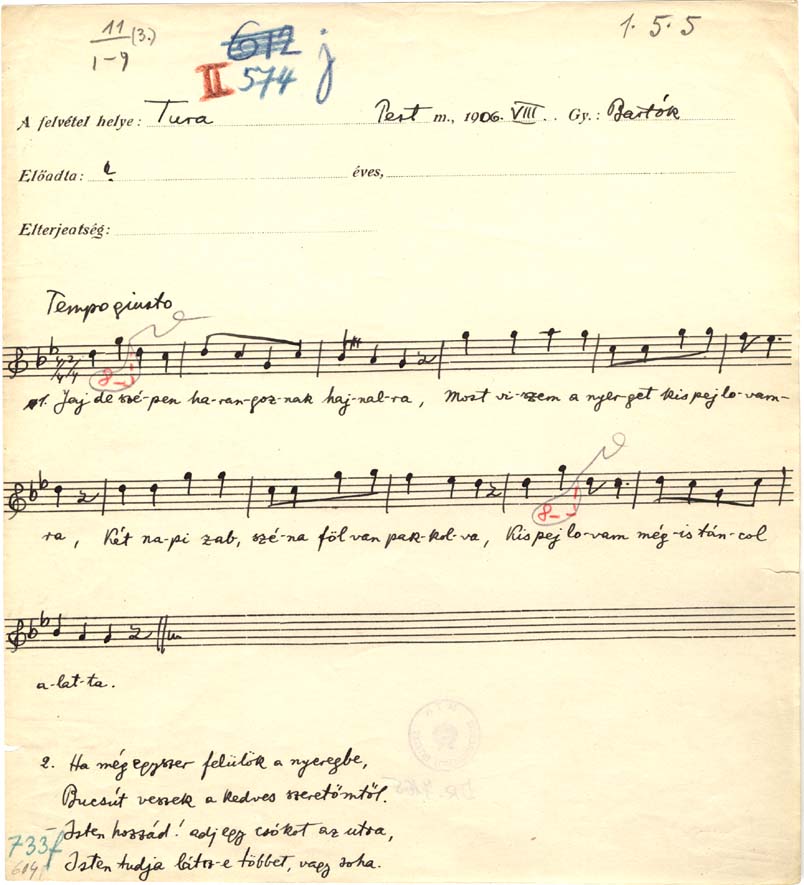 11/1-9 (3.)
1. 5. 5
612 j
II 574
A felvétel helye: Tura Pest m., 1906. VIII. . Gy.: Bartók
Előadta: éves,
Elterjedtség:
Tempo giusto
1. Jaj de szé-pen ha-ran-goz-nak haj-nal-ra, Most vi-szem a nyer-get kis pej lo-vam-
8-
ra, Két na-pi zab, szé-na föl van pak-kol-va, Kis pej lo-vam még-is tán-col
8-
a-lat-ta.
2. Ha még egyszer felülök a nyeregbe,
Bucsút veszek a kedves szeretőmtől.
– Isten hozzád! adj egy csókot az utra,
Isten tudja látsz-e többet, vagy soha.
733f
604